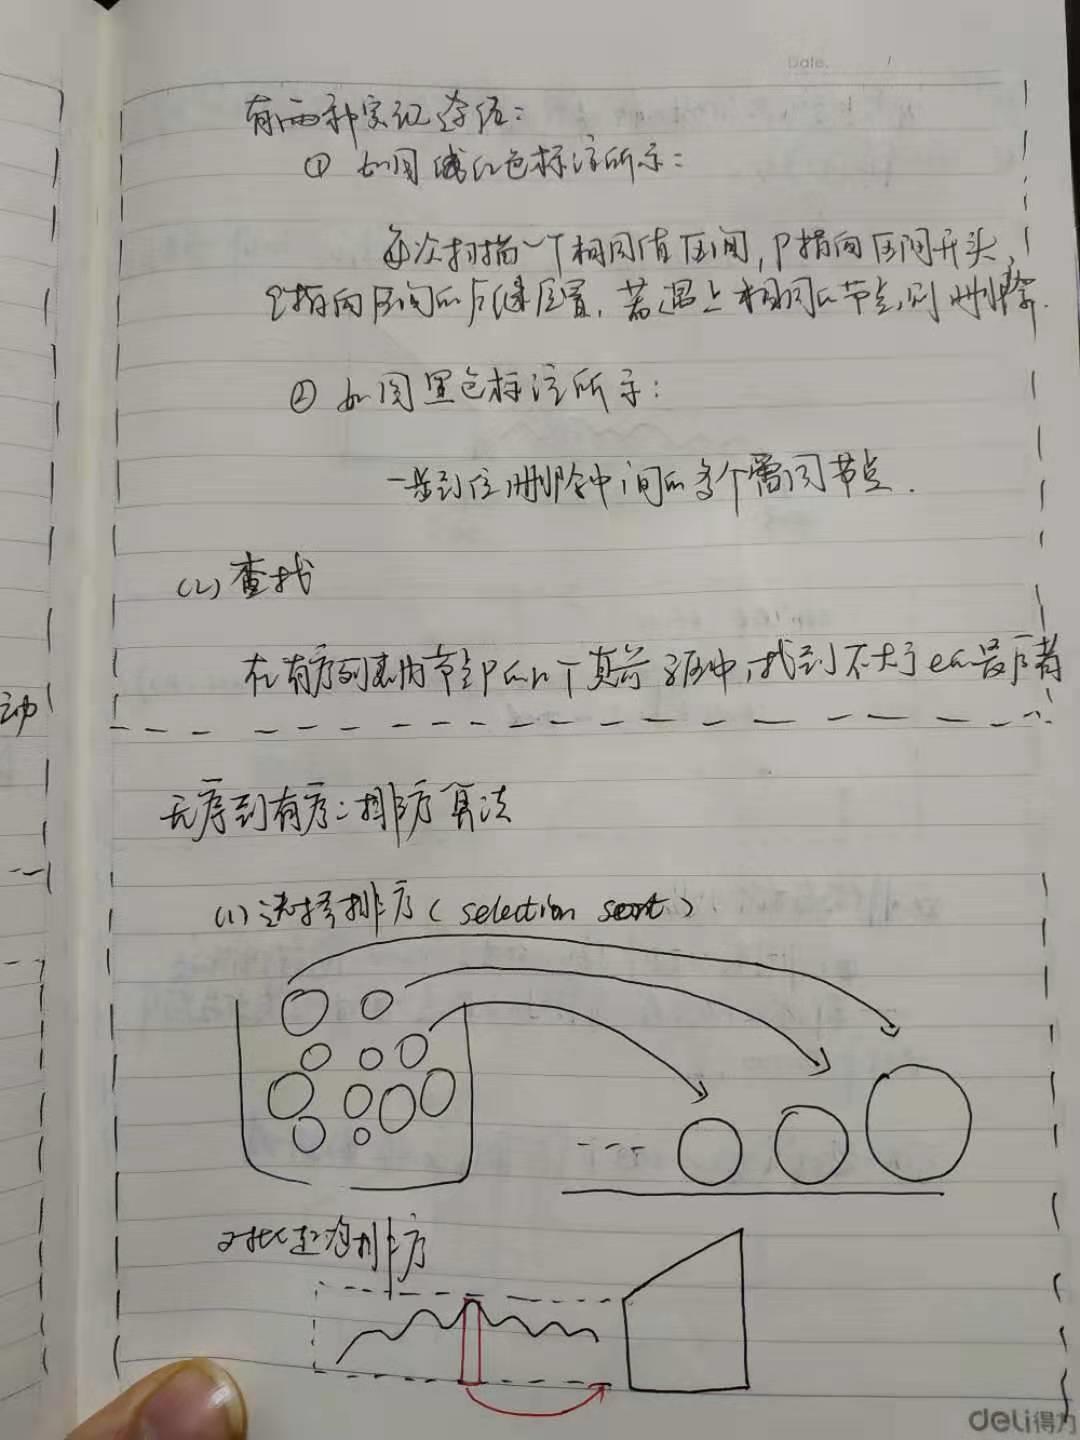 Date. /
有两种实现途径：
① 如图浅红色标注所示：
每次扫描一个相同值区间，P指向区间开头，
q指向区间的后继位置，若遇上相同的节点，则删除.
② 如图黑色标注所示：
一步到位删除中间的多个雷同节点.
(2) 查找
在有序列表内节点P的n个真前驱中，找到不大于e的最后者
动
无序到有序：排序算法
(1) 选择排序 ( selection sort )
对比起泡排序
deli得力